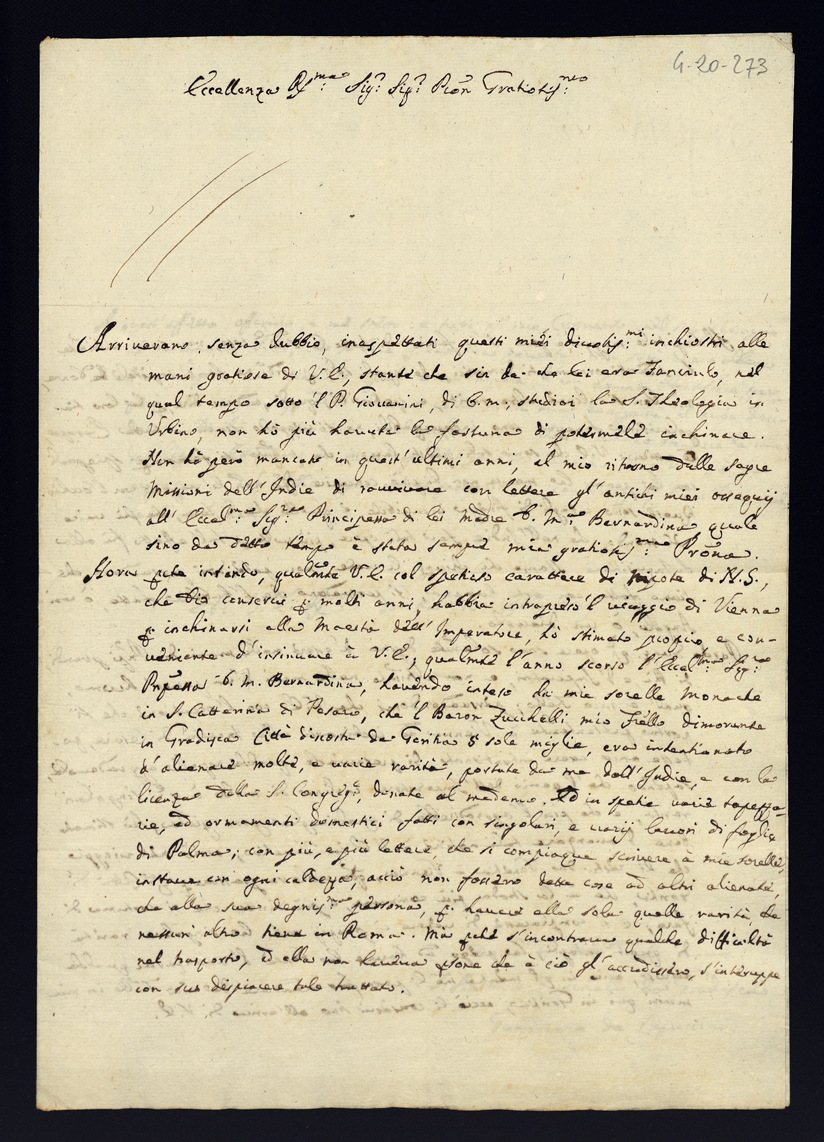 4-20-273
Eccellenza R.ma Sig.r Sig.r Pron Gratiosis.mo
Arriverano, senza dubbio, inaspettati questi miei divotis.mi inchiostri alle
mani gratiose di V.E., stante che sin da che lei era Fanciulo, nel
qual tempo sotto 'l P. Giovanini, di b.m., studiai la S. Theologia in
Urbino, non hò più havuta la fortuna di potermele inchinare.
Non hò però mancato in quest'ultimi anni, al mio ritorno dalle sagre
Missioni dell'Indie di ravvivare con lettere gl'antichi miei ossequij
all'Eccel.ma Sig.ra Principessa di lei Madre b. m.a Bernardina quale
sino da detto tempo è stata sempre mia gratiosis.ma Prona.
Hora pche intendo, qualmte V.E. col spetioso carattere di nipote di N.S.,
che Dio conservi p molti anni, habbia intrapreso 'l viaggio di Vienna
p inchinarsi alla Maestà dell'Imperatore, hò stimato propio, e con-
veniente d'insinuare à V.E., qualmte l'anno scorso l'Eccel.ma Sig.ra
Pnpessa b. m. Bernardina, havendo inteso da mie sorelle Monache
in S. Catterina di Pesaro, che 'l Baron Zucchelli mio Frello dimorante
in Gradisca Città discosta da Goritia 5 sole miglie, era intentionato
d'alienare molte, e varie rarità, portate da me dall'Indie, e con la
licenza della S. Congreg.e, donate al medemo. Ed in spetie varie tapezza-
rie, ed ornamenti domestici fatti con singolari, e varij lavori di foglie
di Palma; con più, e più lettere, che si compiaque scrivere à mie sorelle,
instava con ogni caldezza, acciò non fossero dette cose ad altri alienate,
che alla sua degnis.ma persona, p havere ella sola quelle rarità, che
nessun altro tiene in Roma. Mà pche s'incontrava qualche difficoltà
nel trasporto, ed ella non haveva psone che à ciò gl'accudissero, s'interuppe
con suo dispiacere tale trattato.